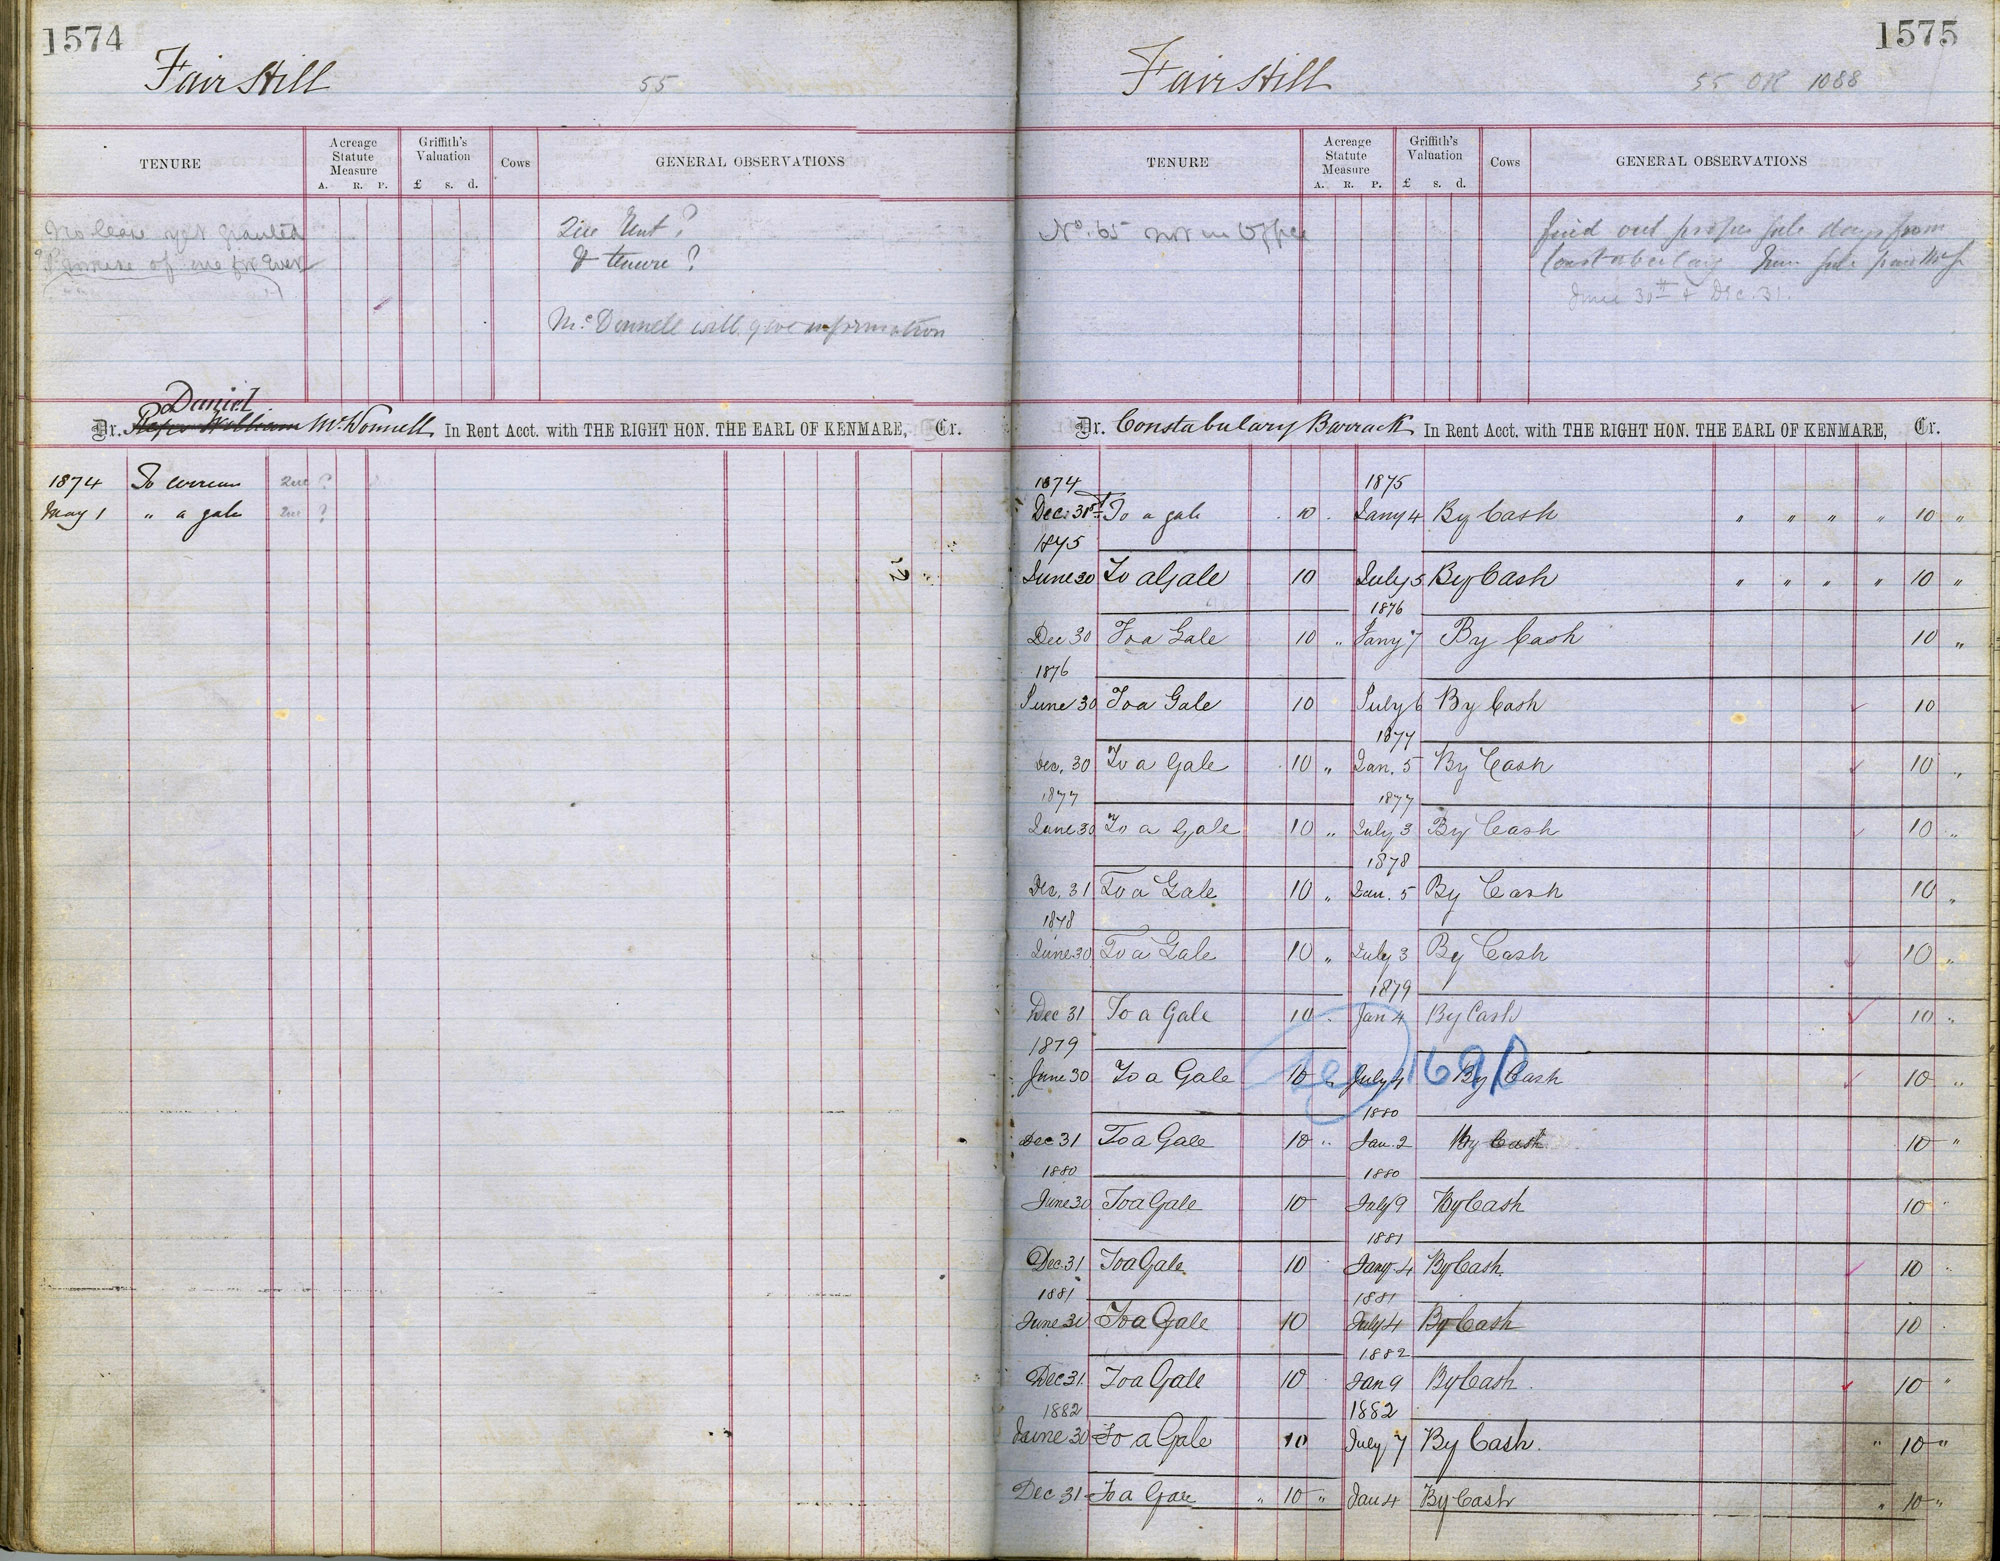 1574
Fair Hill
55
TENURE
Acreage Statute Measure
A. R. P.
Griffith's Valuation
£ s. d.
Cows
GENERAL OBSERVATIONS
No lease yet granted
Promise of one for ever
Rent?
& tenure?
McDonnell will give information
Daniel
Dr. William McDonnell In Rent Acct. with THE RIGHT HON. THE EARL OF KENMARE, Cr.
1874 To arrears ?
May 1 " a gale ?
1575
Fair Hill
55 OR 1088
TENURE
Acreage Statute Measure
A. R. P.
Griffith's Valuation
£ s. d.
Cows
GENERAL OBSERVATIONS
No. 65 not in Office
find out proper gale days from
Constabulary
June 30th & Dec. 31.
Dr. Constabulary Barrack In Rent Acct. with THE RIGHT HON. THE EARL OF KENMARE, Cr.
1874 1875
Dec. 31st To a gale 10 Jany 4 By Cash " " " " 10 "
1875
June 30 To a Gale 10 July 5 By Cash " " " " 10 "
1876
Dec 30 To a Gale 10 " Jany 7 By Cash 10 "
1876
June 30 To a Gale 10 July 6 By Cash 10
1877
Dec. 30 To a Gale 10 " Jan. 5 By Cash 10 "
1877 1877
June 30 To a Gale 10 " July 3 By Cash 10 "
1878
Dec. 31 To a Gale 10 " Jan. 5 By Cash 10 "
1878
June 30 To a Gale 10 " July 3 By Cash 10 "
1879
Dec 31 To a Gale 10 " Jan 4 By Cash 10 "
1879
see 1690
June 30 To a Gale 10 " July 4 By Cash 10 "
1880
Dec 31 To a Gale 10 " Jan. 2 By Cash 10 "
1880 1880
June 30 To a Gale 10 July 9 By Cash 10 "
1881
Dec. 31 To a Gale 10 Jany. 4 By Cash 10
1881 1881
June 30 To a Gale 10 July 4 By Cash 10
1882
Dec 31 To a Gale 10 Jan 9 By Cash 10 "
1882 1882
June 30 To a Gale 10 July 7 By Cash " 10 "
Dec 31 To a Gale " 10 " Jan 4 By Cash " 10 "